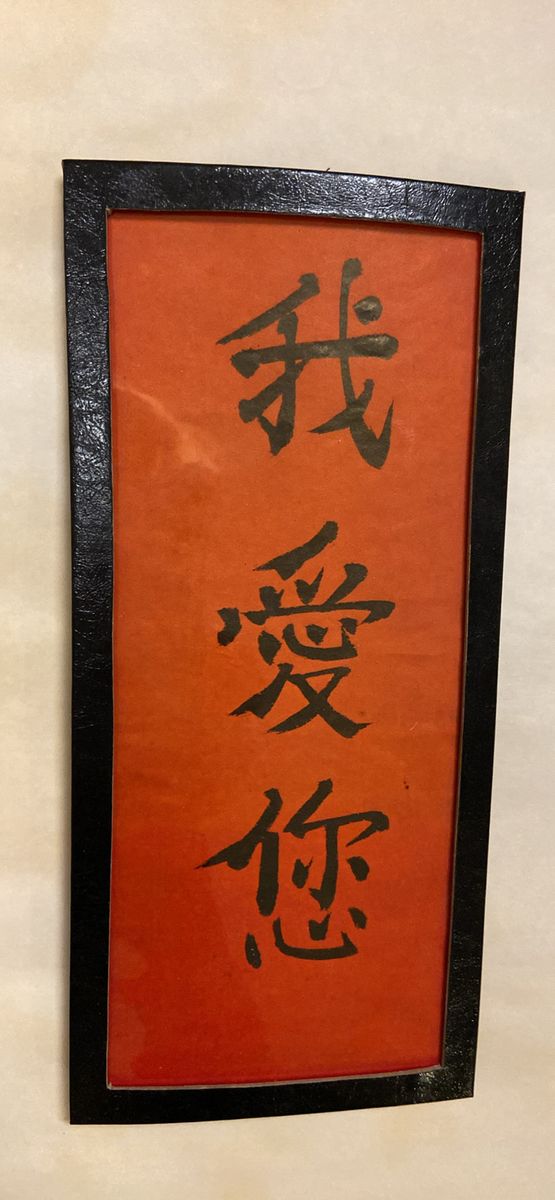 我愛您